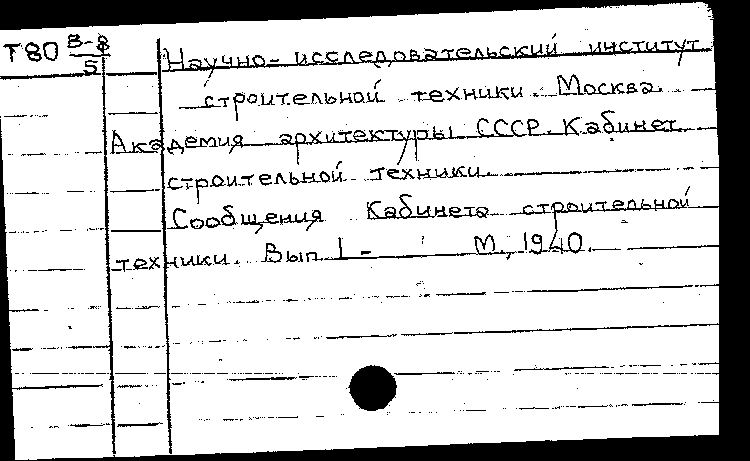 Т80 В-8/5
Научно-исследовательский институт
строительной техники. Москва.
Академия архитектуры СССР. Кабинет
строительной техники.
Сообщения Кабинета строительной
техники. Вып. 1 - М., 1940.